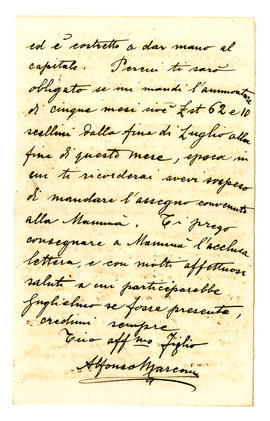 ed è costretto a dar mano al
capitale. Percui ti sarò
obbligato se mi mandi l'ammontare
di cinque mesi cioè £st 62 e 10
scellini dalla fine di Luglio alla
fine di questo mese, epoca in
cui ti ricorderai avevi sospeso
di mandare l'assegno convenuto
alla Mammà. Ti prego
consegnare a Mammà l'acclusa
lettera, e con molti affettuosi
saluti a cui parteciparebbe
Guglielmo se fosse presente,
credimi sempre
Tuo aff.mo figlio
Alfonso Marconi